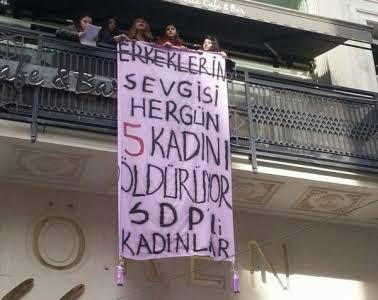 Cafe & Bar
Cafe & Bar
ERKEKLERİN
SEVGİSİ
HERGÜN
5 KADINI
ÖLDÜRÜYOR
SDP'li
KADINLAR